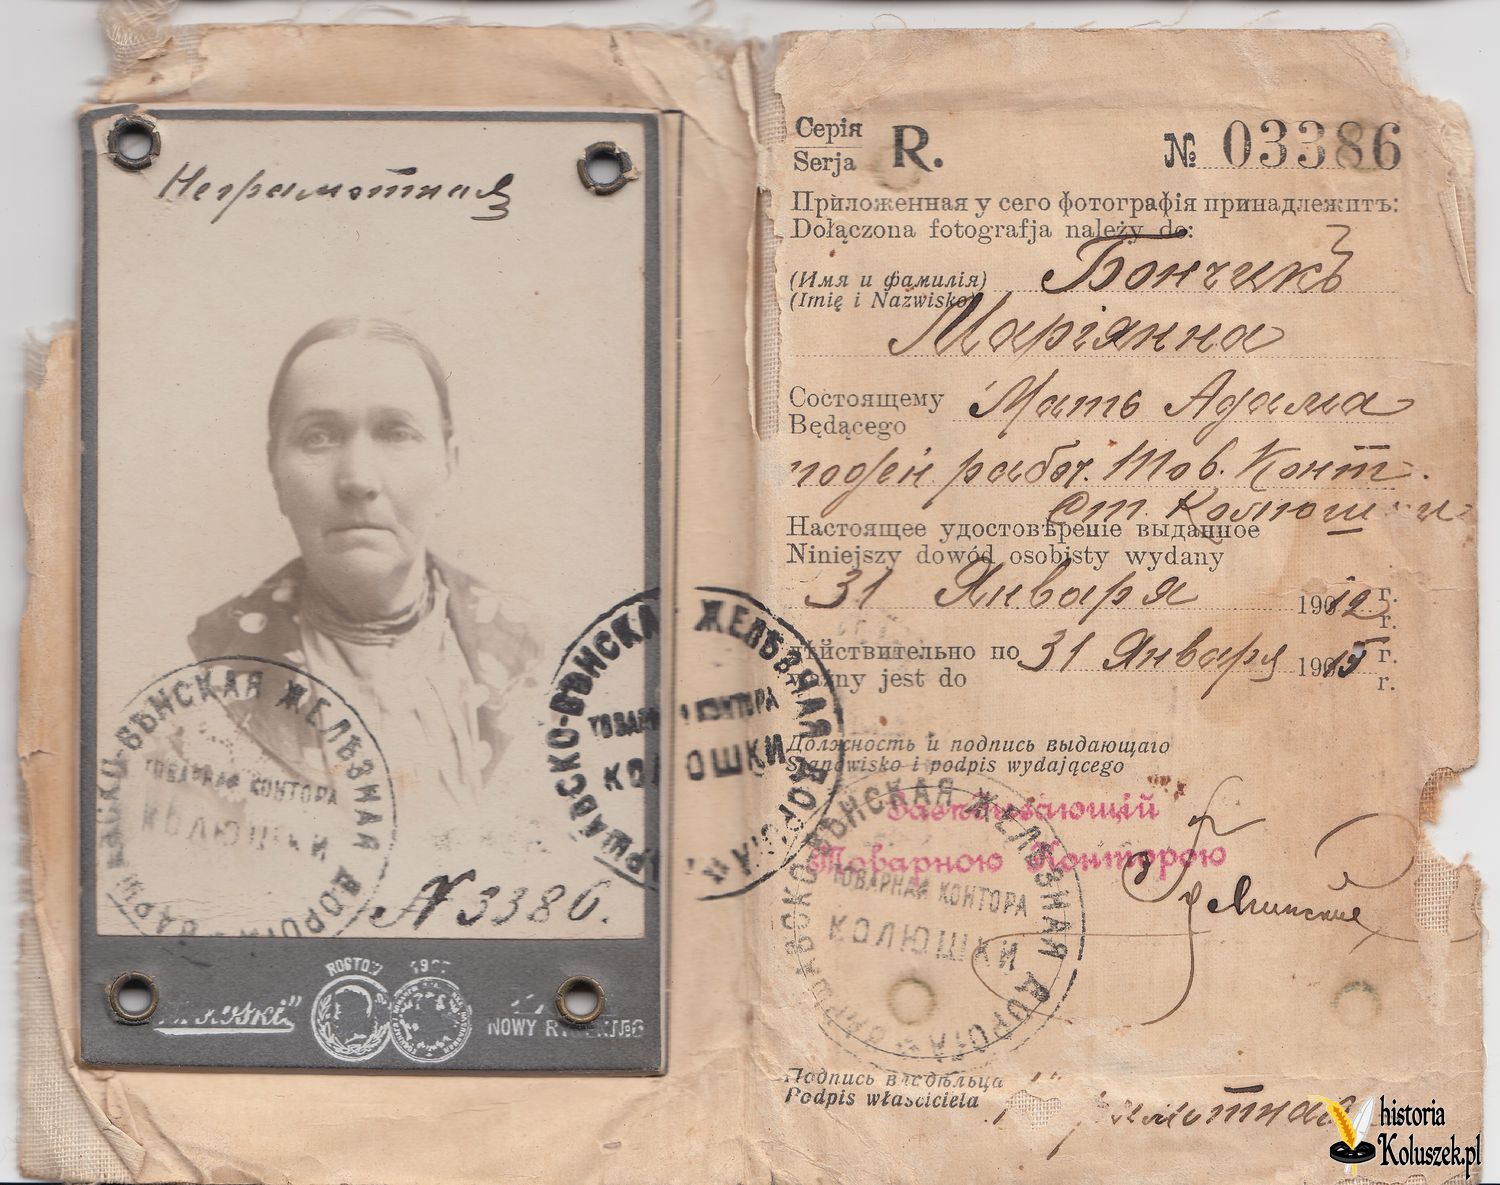 Неграмотная
ВАРШАВСКО-ВѢНСКАЯ ЖЕЛѢЗНАЯ ДОРОГА
ТОВАРНАЯ КОНТОРА
КОЛЮШКИ
N 3386.
ROSTOV
NOWY RYNEK №6
ВАРШАВСКО-ВѢНСКАЯ ЖЕЛѢЗНАЯ ДОРОГА
ТОВАРНАЯ КОНТОРА
КОЛЮШКИ
Серія
Serja
R.
№ 03386
Приложенная у сего фотографія принадлежитъ:
Dołączona fotografja należy do:
Бончикъ
(Имя и фамилія)
(Imię i Nazwisko)
Маріянна
Состоящему Мать Адама
Będącego
поден рабоч. Тов. Конт.
ст. Колюшки
Настоящее удостовѣреніе выданное
Niniejszy dowód osobisty wydany
31 Января 1912 г.
r.
дѣйствительно по 31 Января 1915 г.
ważny jest do r.
Должность и подпись выдающаго
Stanowisko i podpis wydającego
Завѣдывающій
Товарною Конторою
ВАРШАВСКО-ВѢНСКАЯ ЖЕЛѢЗНАЯ ДОРОГА
ТОВАРНАЯ КОНТОРА
КОЛЮШКИ
Подпись владѣльца
Podpis właściciela
historia
Koluszek.pl